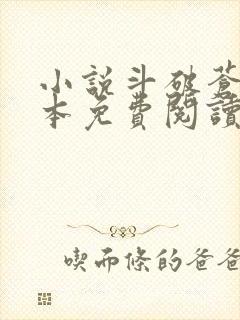 小說斗破蒼
本免費閱讀
喫而條的爸爸